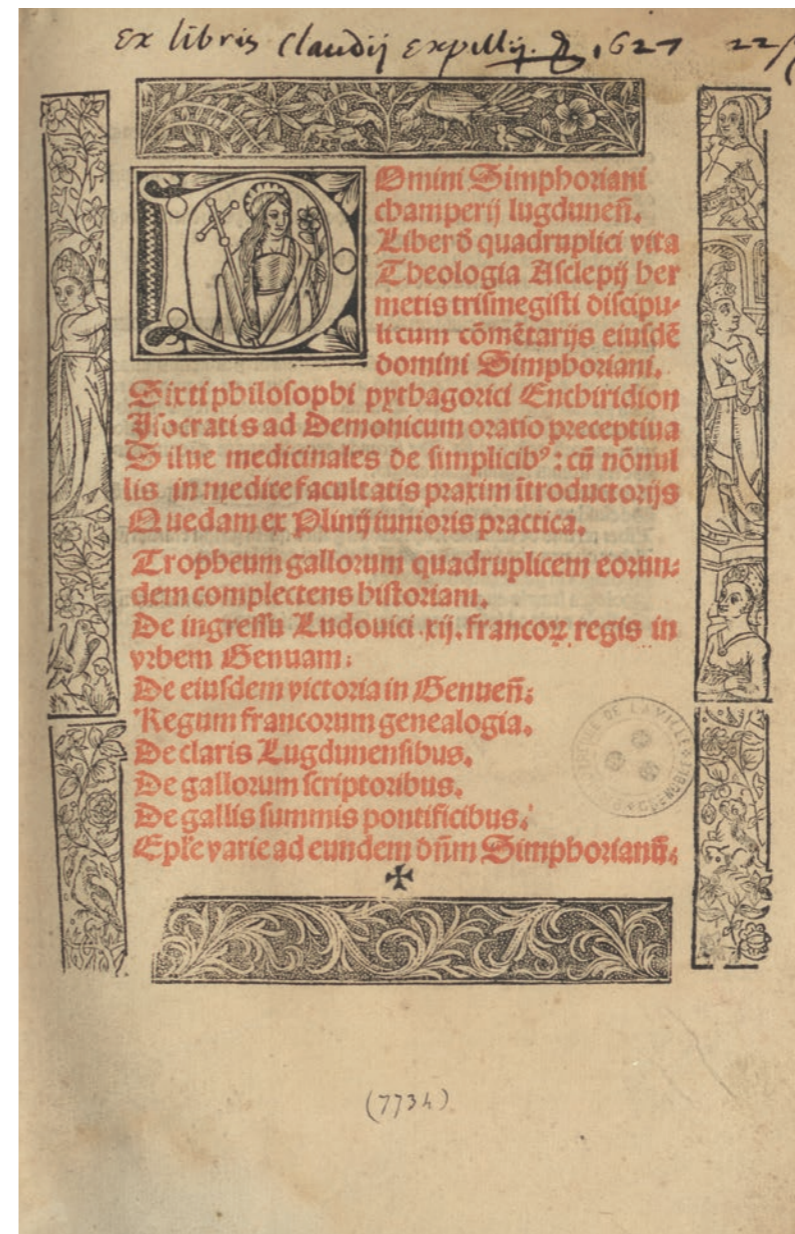 ex libris Claudij expillij. 1627 22
DOmini Simphoriani
champerij lugduneñ.
Liber ð quadruplici vita
Theologia Asclepij her
metis trismegisti discipu-
li cum cōmētarijs eiusdē
domini Simphoriani.
Sixti philosophi pythagorici Enchiridion
Isocratis ad Demonicum oratio preceptiua
Silue medicinales de simplicibꝰ: cū nōnul
lis in medice facultatis praxim ītroductorijs
Quedam ex Plinij iunioris practica.
Tropheum gallorum quadruplicem eorun-
dem complectens historiam.
De ingressu Ludouici .xij. francoꝝ regis in
vrbem Genuam:
De eiusdem victoria in Genueñ:
Regum francorum genealogia.
De claris Lugdunensibus.
De gallorum scriptoribus.
De gallis summis pontificibus.
Epl'e varie ad eundem dñm Simphorianū.
DE LA VILLE
GRENOBLE
(7734)